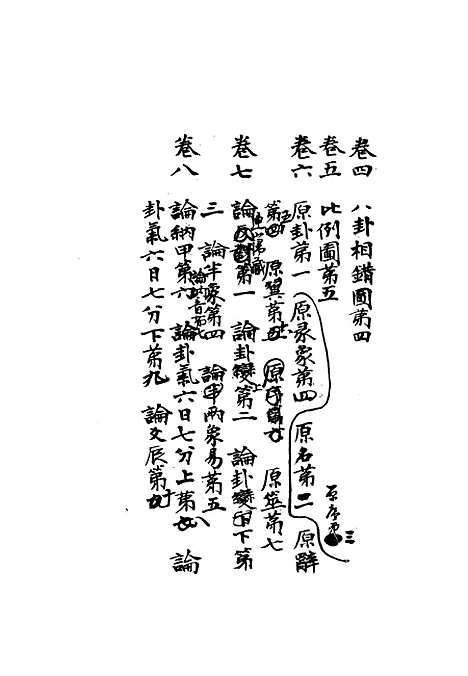 卷四 八卦相錯圖第四
卷五 比例圖第五
卷六 原卦第一 原彖象第四 原名第二 原序第三 原辭
第五 原翼第六 原筮第七
卷七 論連山歸藏第一 論卦變上第二 論卦變下第
三 論半象第四 論兩象易第五
卷八 論納甲第六 論納音第七 論卦氣六日七分上第八 論
卦氣六日七分下第九 論爻辰第十